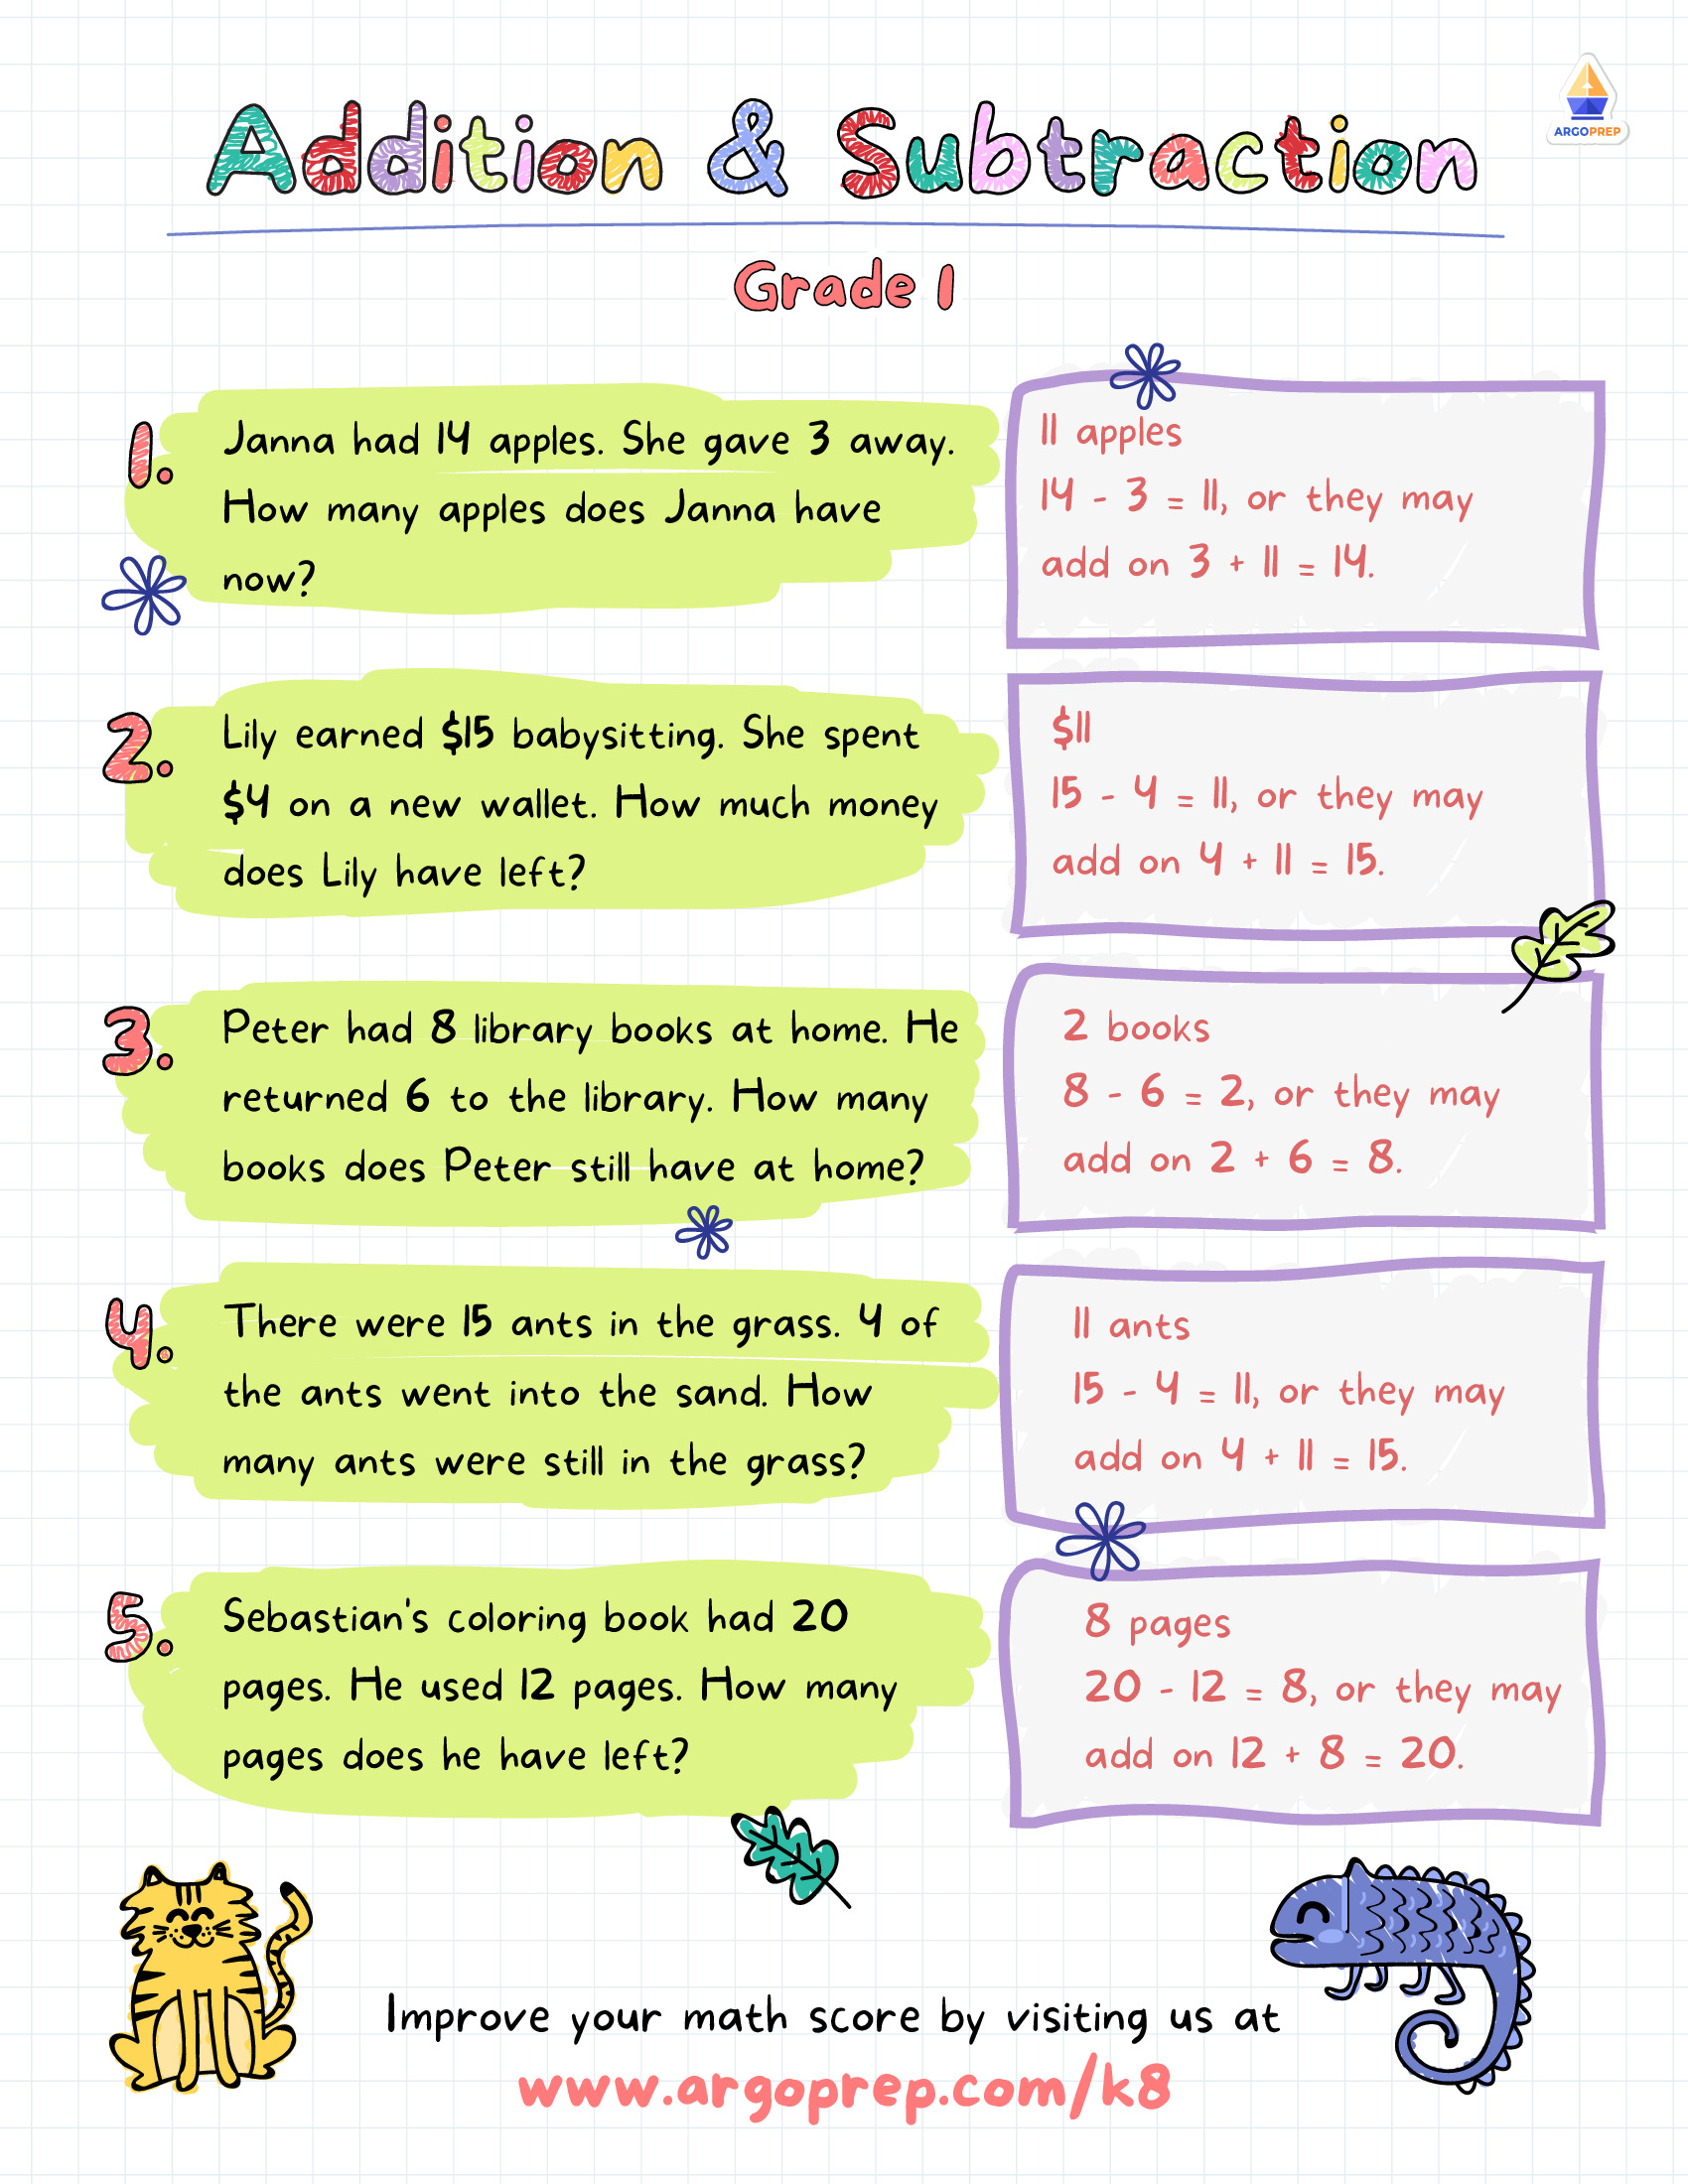 ARGOPREP
Addition & Subtraction
Grade 1
1.
Janna had 14 apples. She gave 3 away.
How many apples does Janna have
now?
11 apples
14 - 3 = 11, or they may
add on 3 + 11 = 14.
2.
Lily earned $15 babysitting. She spent
$4 on a new wallet. How much money
does Lily have left?
$11
15 - 4 = 11, or they may
add on 4 + 11 = 15.
3.
Peter had 8 library books at home. He
returned 6 to the library. How many
books does Peter still have at home?
2 books
8 - 6 = 2, or they may
add on 2 + 6 = 8.
4.
There were 15 ants in the grass. 4 of
the ants went into the sand. How
many ants were still in the grass?
11 ants
15 - 4 = 11, or they may
add on 4 + 11 = 15.
5.
Sebastian's coloring book had 20
pages. He used 12 pages. How many
pages does he have left?
8 pages
20 - 12 = 8, or they may
add on 12 + 8 = 20.
Improve your math score by visiting us at
www.argoprep.com/k8